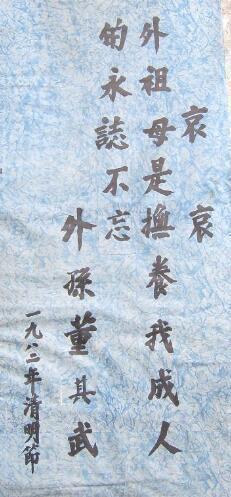 哀哀
外祖母是撫養我成人
的永誌不忘
外孫董其武
一九八二年清明節